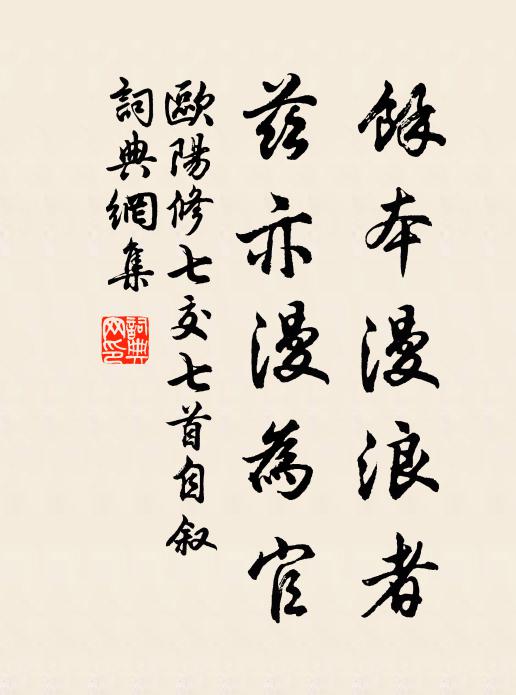 餘本漫浪者
茲亦漫為官
歐陽修七交七首自叙
詞典網集
詞典網印